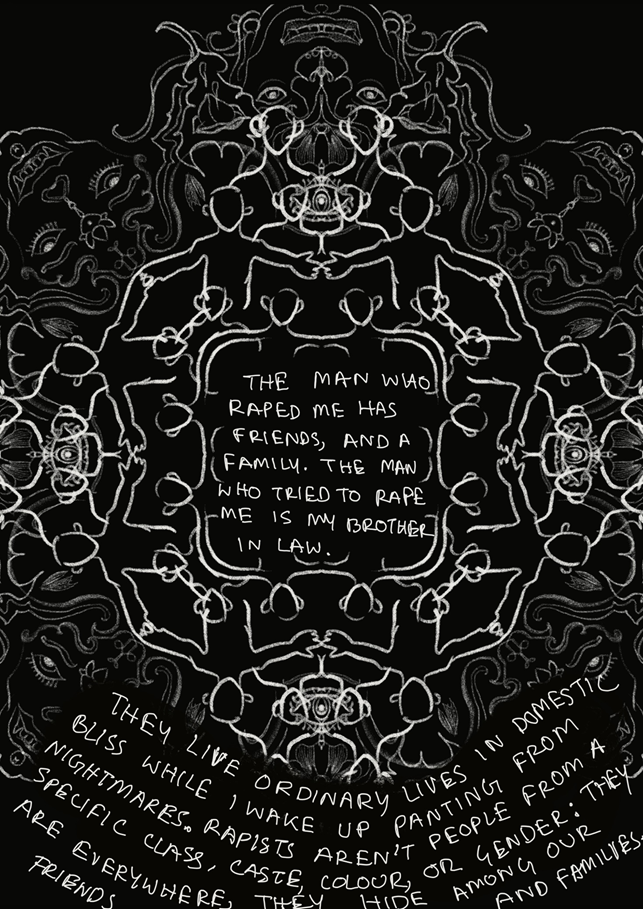 THE MAN WHO
RAPED ME HAS
FRIENDS, AND A
FAMILY. THE MAN
WHO TRIED TO RAPE
ME IS MY BROTHER
IN LAW.
THEY LIVE ORDINARY LIVES IN DOMESTIC
BLISS WHILE I WAKE UP PANTING FROM
NIGHTMARES. RAPISTS AREN'T PEOPLE FROM A
SPECIFIC CLASS, CASTE, COLOUR, OR GENDER: THEY
ARE EVERYWHERE, THEY HIDE AMONG OUR
FRIENDS AND FAMILIES.